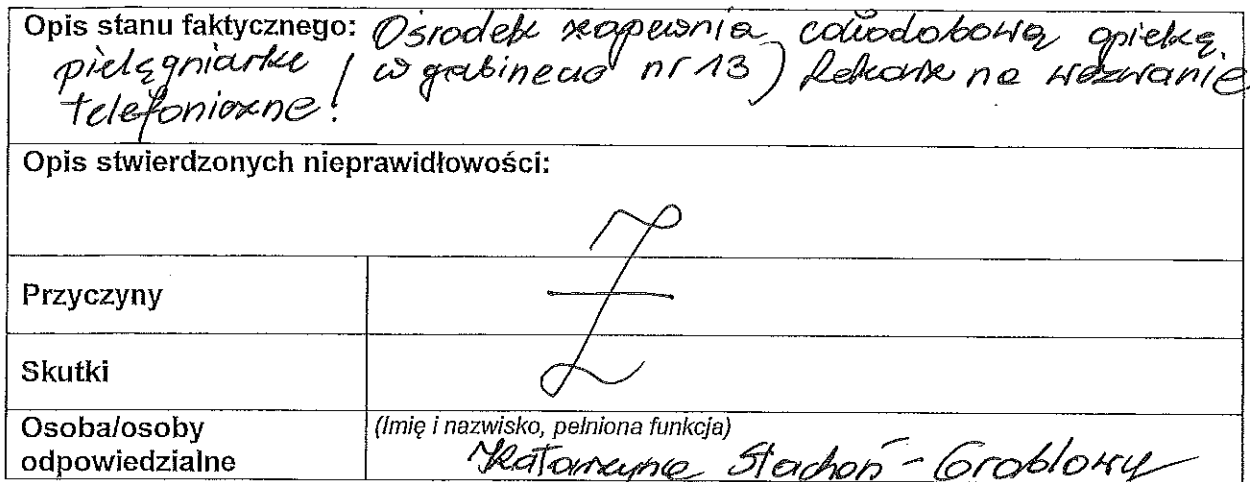 Opis stanu faktycznego: Ośrodek zapewnia całodobową opiekę
pielęgniarki (w gabinecie nr 13) Lekarz na wezwanie
telefoniczne!
Opis stwierdzonych nieprawidłowości:
Przyczyny
Skutki
Osoba/osoby
odpowiedzialne
(Imię i nazwisko, pełniona funkcja)
Katarzyna Stachoń - Groblowy